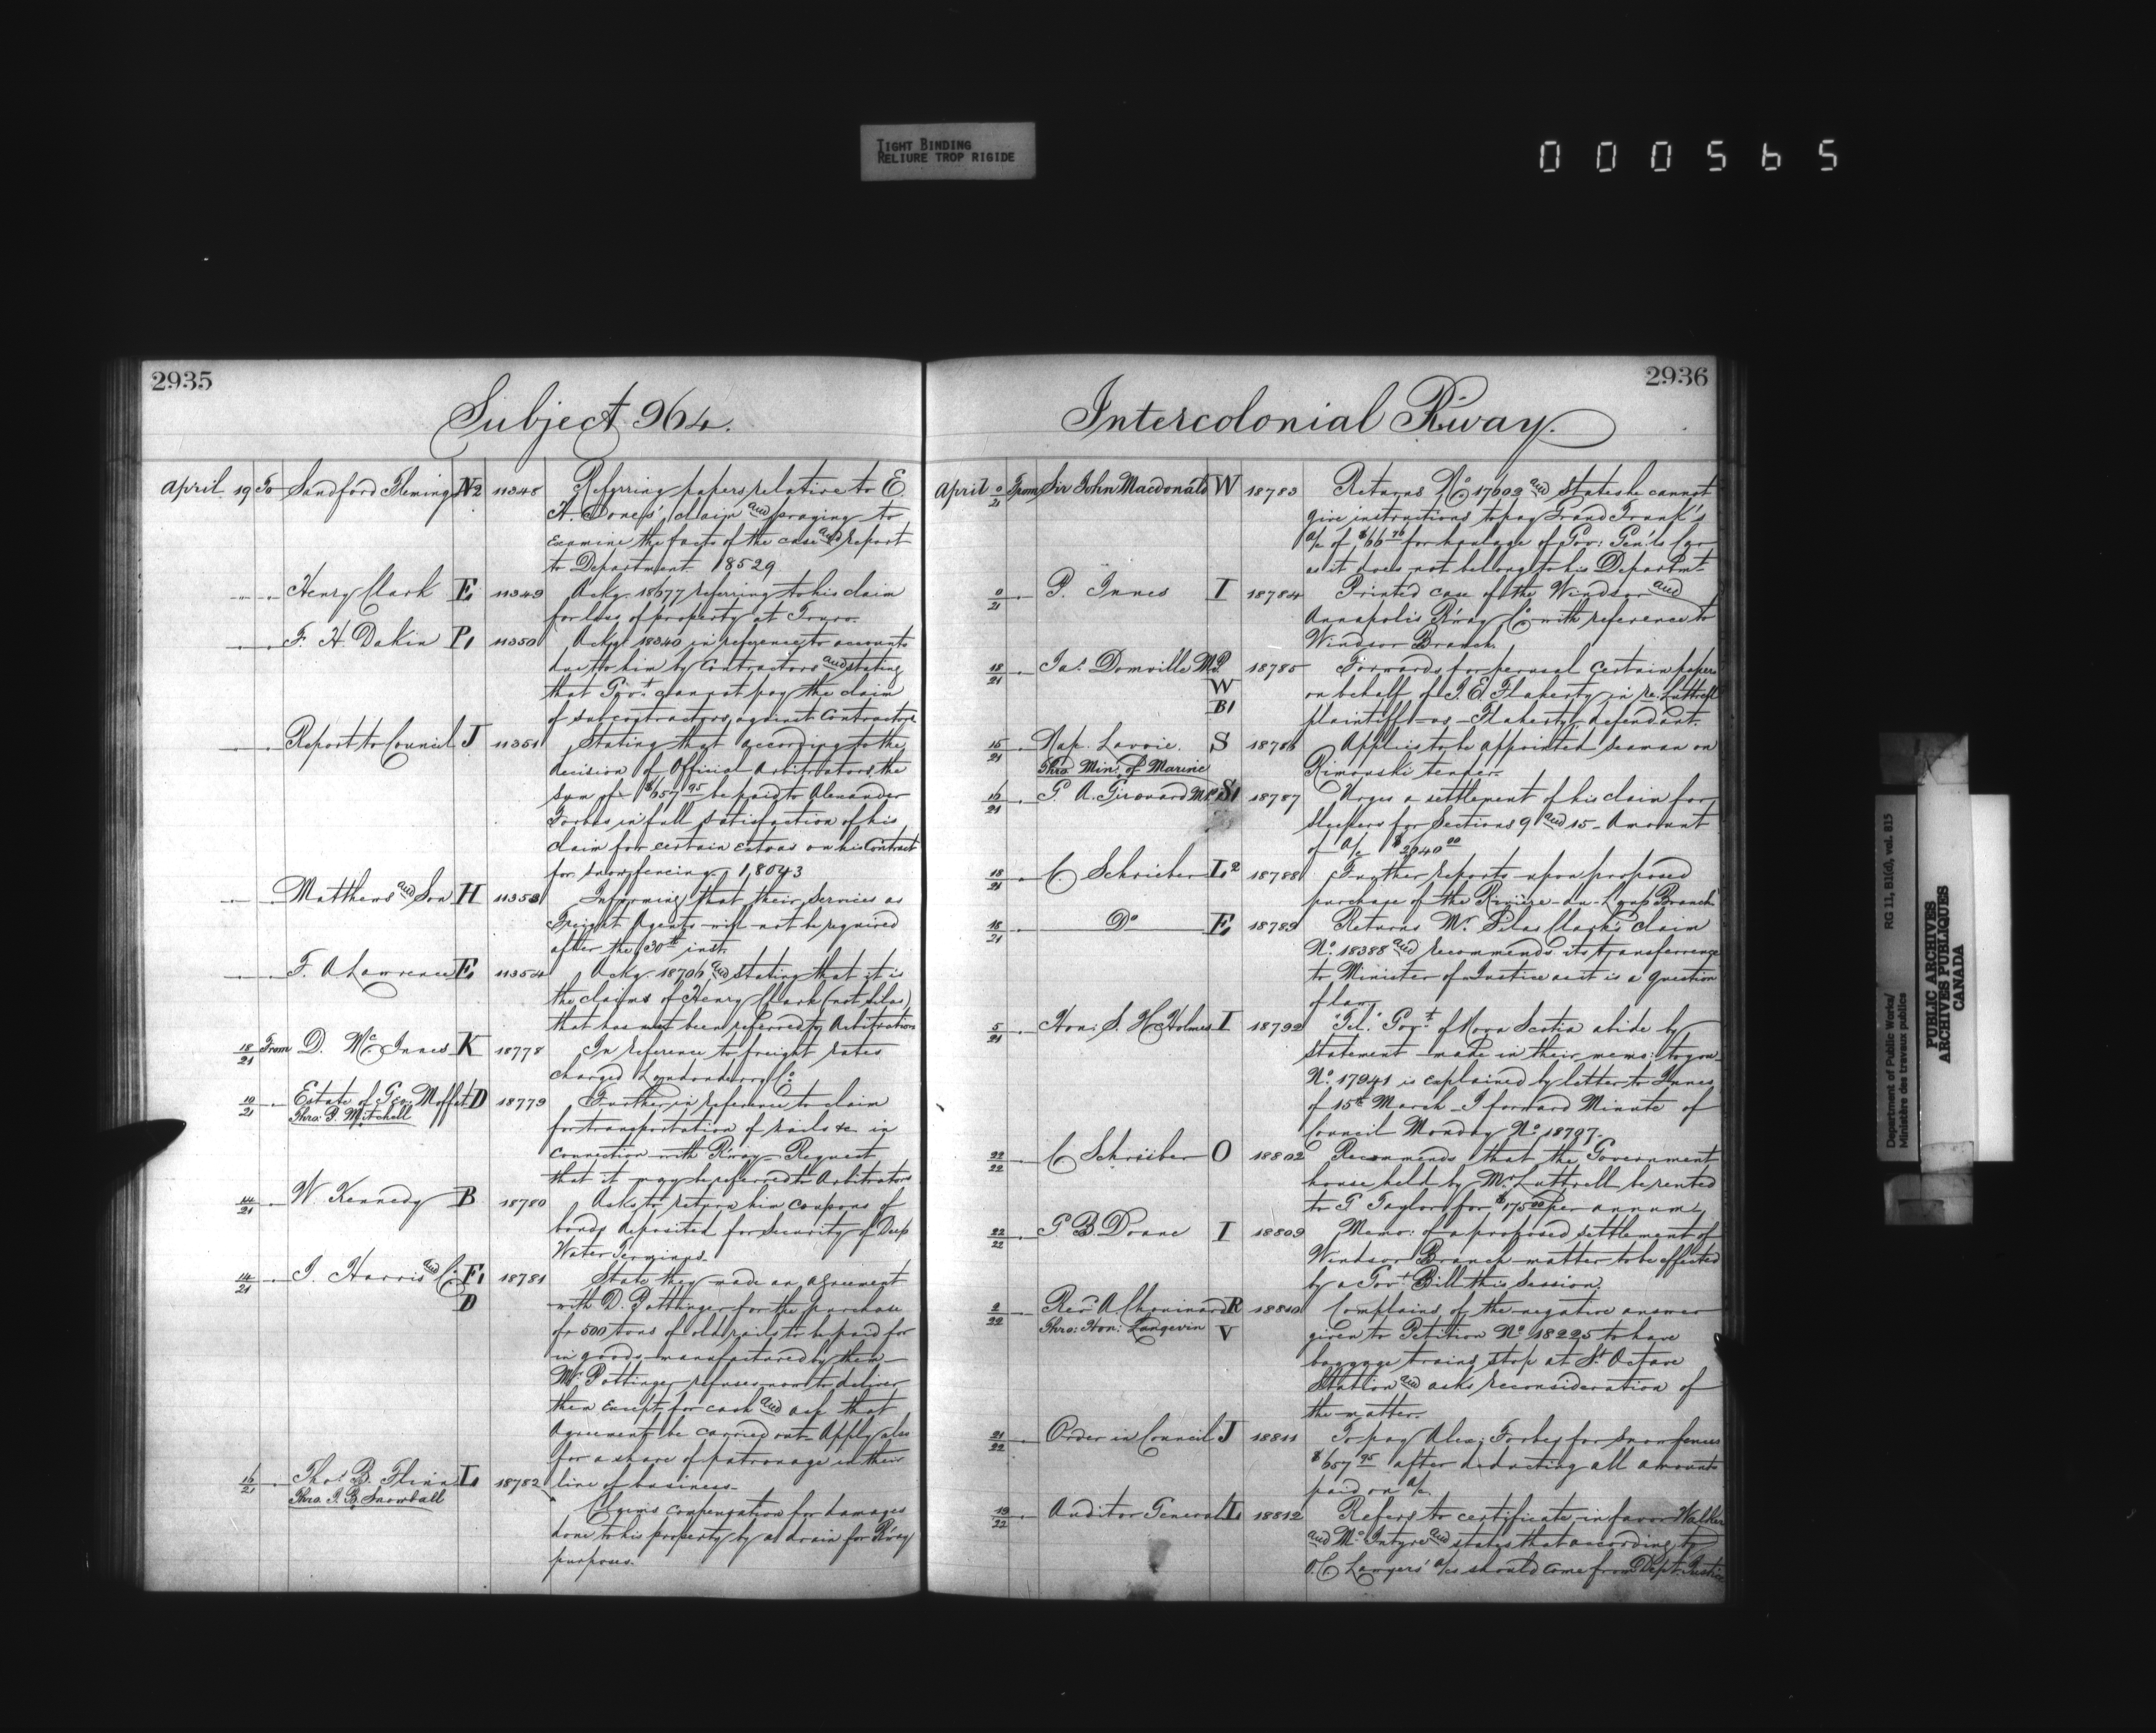 TIGHT BINDING
RELIURE TROP RIGIDE
000565
2935
Subject 964.
April 19 To Sandford Fleming N2 11348 Referring papers relative to E
A. Jones' claim and praying to
examine the facts of the case and report
to Department 18529
Henry Clark E, 11349 Ackg. 18677 referring to his claim
for loss of property at Truro.
F. H. Dakin P, 11350 Ackg. 18340 in reference to accounts
due to him by Contractors and stating
that Govt. cannot pay the claim
of subcontractors against Contractors
Report to Council J 11351 Stating that according to the
decision of Official Arbitrators the
sum of $657 95 be paid to Alexander
Forbes in full satisfaction of his
claim for certain extras on his Contract
for snowfencing 18043
Matthews and Son H 11353 Informing that their services as
Freight Agents will not be required
after the 30th inst.
F. A Lawrence E, 11354 Ackg. 18706 and stating that it is
the claims of Henry Clark (not Silas)
that has not been referred to Arbitrators
18/21 From D. McInnes K 18778 In reference to freight rates
charged Londonderry Co.
19/21 Estate of Geo. Moffat D 18779 Further in reference to claim
Thro. P. Mitchell
for transportation of rails &c in
connection with R'way - Request
that it may be referred to Arbitrators
14/21 W. Kennedy B 18780 Asks to return him coupons of
bonds deposited for security of Deep
Water Terminus.
14/21 J. Harris and Co. F, 18781 State they made an agreement
D with D. Pottinger for the purchase
of 500 tons of old rails to be paid for
in goods manufactured by them -
Mr. Pottinger refuses now to deliver
them except for cash and ask that
Agreement be carried out - Apply also
for a share of patronage in their
line of business -
16/21 Thos. B. Flinn L 18782
Thro. J. B. Snowball
Claims compensation for damages
done to his property by a drain for R'way
purposes.
2936
Intercolonial R'way.
April 0/21 From Sir John Macdonald W 18783 Returns No 17602 and states he cannot
give instructions to pay Grand Trunk's
a/c of $66 76 for haulage of Gov: Gen'ls Car
as it does not belong to his Departmt.
0/21 P. Innes I 18784 Printed case of the Windsor and
Annapolis R'way Co with reference to
Windsor Branch.
18/21 Jas. Domville M.P. 18785 Forwards for perusal certain papers
W on behalf of J. E Flaherty in re. Luttrell
B1 plaintiff - vs - Flaherty defendant.
15/21 Nap. Lavoie. S 18786 Applies to be appointed seaman on
Thro. Min. of Marine
Rimouski tender.
16/21 G. A. Girouard M.P. S1 18787 Urges a settlement of his claim for
sleepers for Sections 9 and 15 - Amount
of a/c $2940 00
18/21 C. Schrieber L2 18788 Further reports upon proposed
purchase of the Rivière-du-Loup Branch
18/21 Do E, 18789 Returns Mr. Silas Clark's claim
No. 18388 and recommends its transferrence
to Minister of Justice as it is a question
of law.
5/21 Hon: S. H. Holmes I 18792 "Tel." Govt. of Nova Scotia abide by
statement made in their memo: to you
No. 17941 is explained by letter to Innes
of 15th March - I forward Minute of
Council Monday No 18797.
22/22 C Schrieber O 18802 Recommends that the Government
house held by Mr. Luttrell be rented
to G Taylor for $175 00 per annum,
22/22 G B Doane I 18809 Memo: of a proposed settlement of
Windsor Branch matter to be effected
by a Govt. Bill this Session.
2/22 Revd. A. Chouinard R 18810 Complains of the negative answer
Thro: Hon: Langevin V given to Petition No 18225 to have
baggage trains stop at St. Octave
Station and asks reconsideration of
the matter.
21/22 Order in Council J 18811 To pay Alex: Forbes for snow fences
$657 95 after deducting all amounts
paid on a/c.
19/22 Auditor General L 18812 Refers to certificate in favor Walker
and McIntyre and states that according to
O.C Lawyers' a/cs should come from Dept. Justice
Department of Public Works/
Ministère des travaux publics
RG 11, B1(d), vol. 815
PUBLIC ARCHIVES
ARCHIVES PUBLIQUES
CANADA